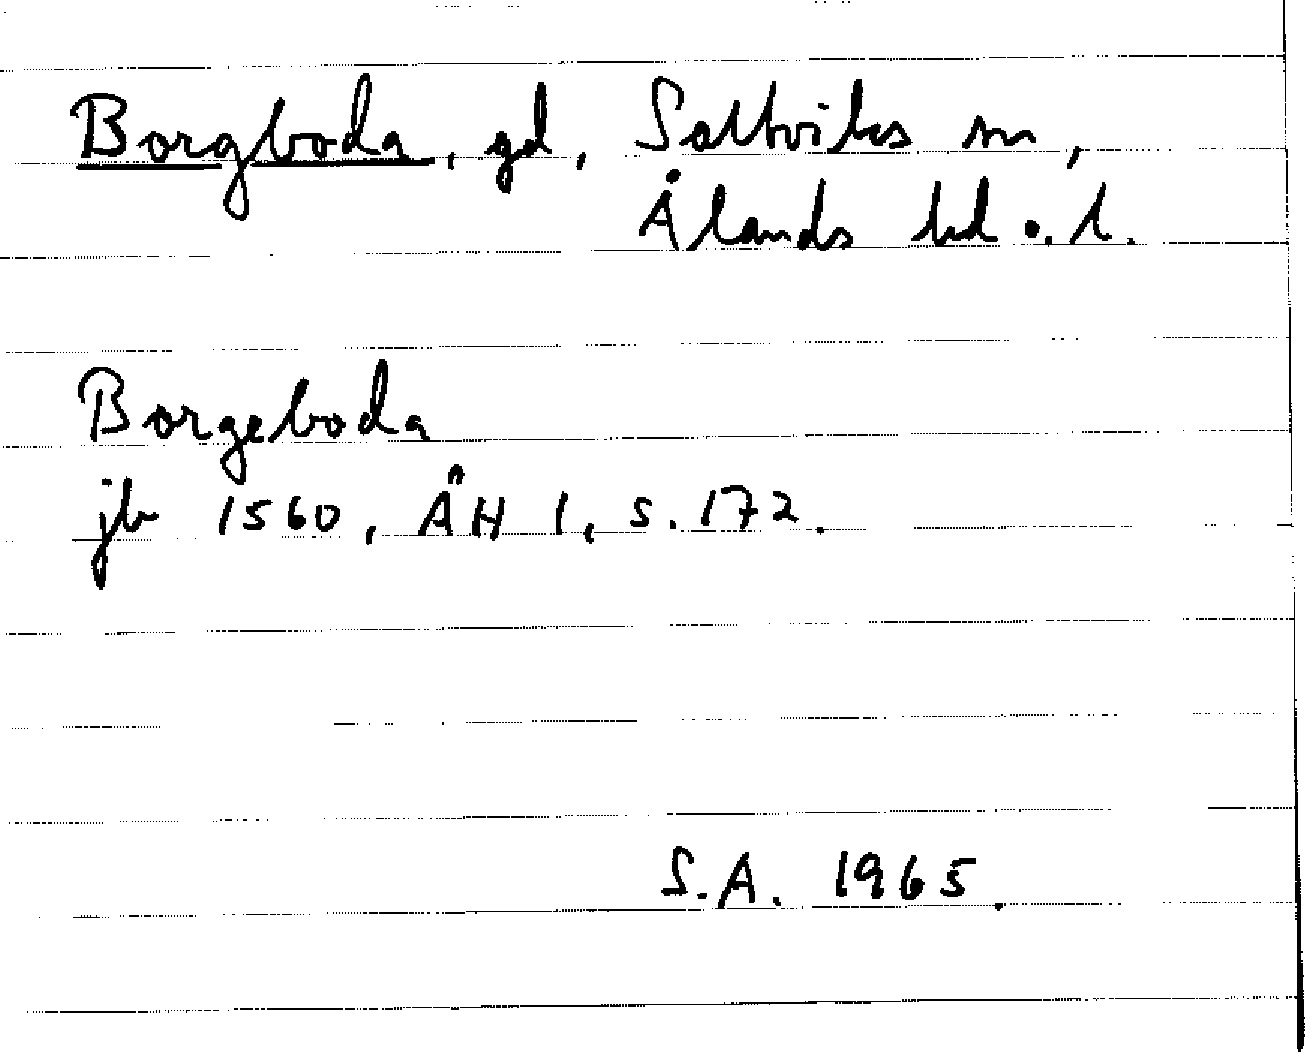 Borgboda, gd, Saltviks sn,
Ålands hd o. l.
Borgeboda
jb 1560, ÅH 1, s. 172.
S.A. 1965.